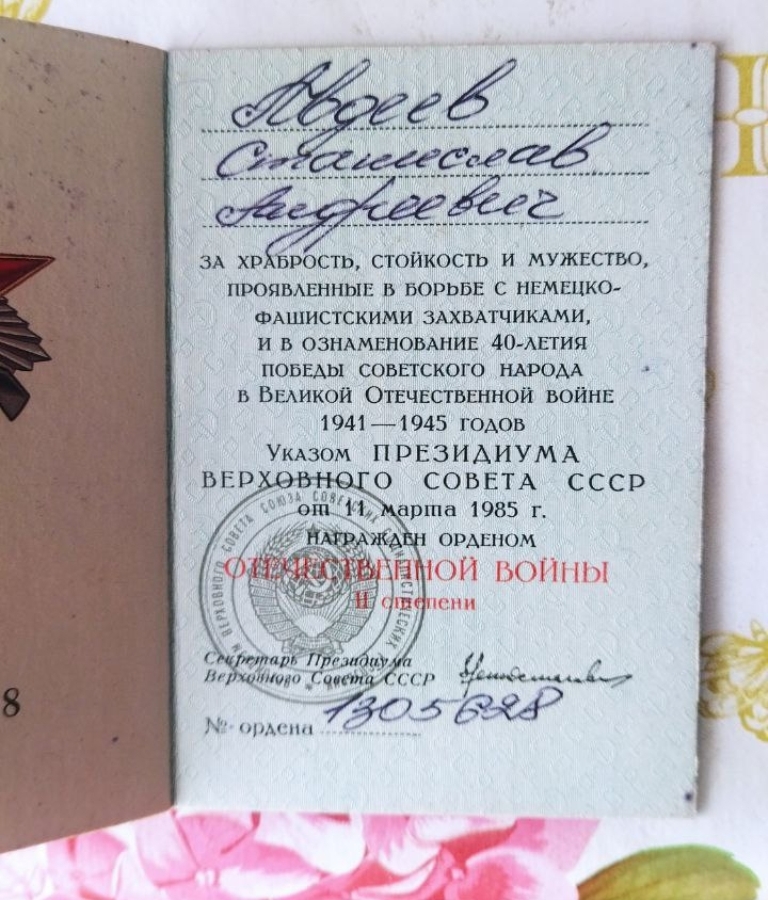 Авдеев
Станислав
Андреевич
за храбрость, стойкость и мужество,
проявленные в борьбе с немецко-
фашистскими захватчиками,
и в ознаменование 40-летия
победы советского народа
в Великой Отечественной войне
1941—1945 годов
Указом ПРЕЗИДИУМА
ВЕРХОВНОГО СОВЕТА СССР
от 11 марта 1985 г.
награжден орденом
ОТЕЧЕСТВЕННОЙ ВОЙНЫ
II степени
Секретарь Президиума
Верховного Совета СССР
№ ордена 1305628
8